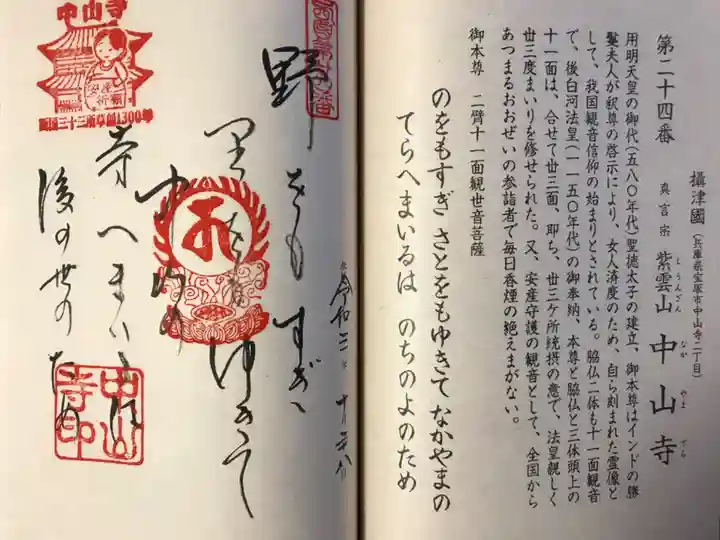 第二十四番
攝津國（兵庫県宝塚市中山寺二丁目）
真言宗 紫雲山 中山寺
しうんざん なか やま でら
用明天皇の御代（五八〇年代）聖徳太子の建立、御本尊はインドの勝
鬘夫人が釈尊の啓示により、女人済度のため、自ら刻まれた霊像と
して、我国観音信仰の始まりとされている。脇仏二体も十一面観音
で、後白河法皇（一一五〇年代）の御奉納、本尊と脇仏と三体頭上の
十一面は、合せて丗三面、即ち、丗三ケ所統摂の意で、法皇親しく
丗三度まいりを修せられた。又、安産守護の観音として、全国から
あつまるおおぜいの参詣者で毎日香煙の絶えまがない。
御本尊 二臂十一面観世音菩薩
のをもすぎ さとをもゆきて なかやまの
てらへまいるは のちのよのため
令和三年十月
野をもすぎ
里をもゆきて
中山の
寺へまいるは
後の世のため
中山寺
安産祈願
西国三十三所草創1300年
中山寺印